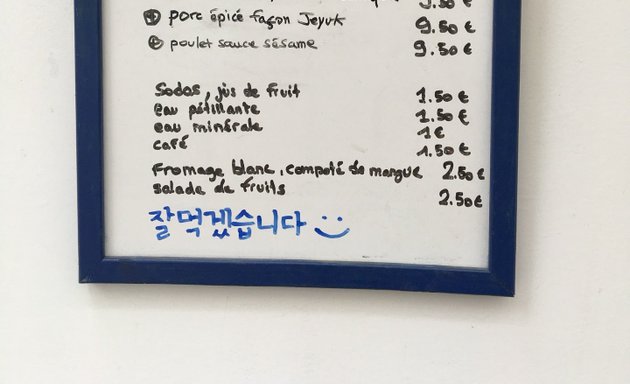 9.50 €
⊕ porc épicé façon Jeyuk 9.50 €
⊕ poulet sauce sésame 9.50 €
Sodas, jus de fruit 1.50 €
eau pétillante 1.50 €
eau minérale 1 €
café 1.50 €
Fromage blanc, compoté de mangue 2.50 €
salade de fruits 2.50 €
잘먹겠습니다